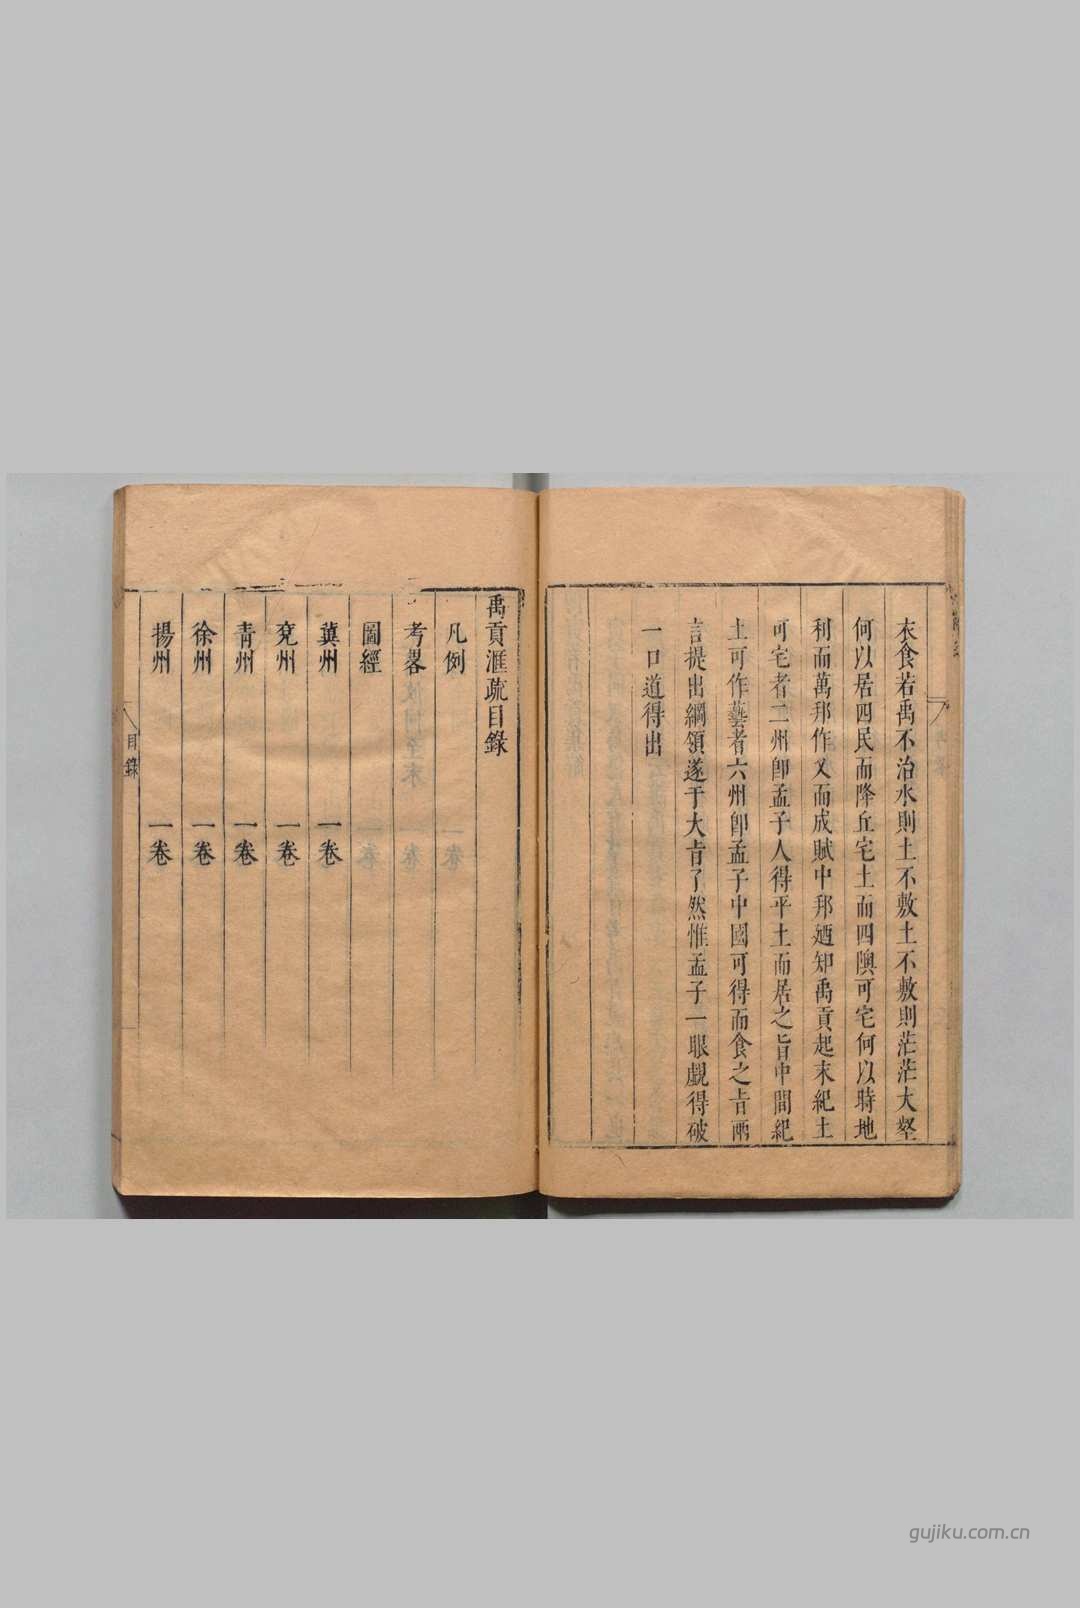 衣食若禹不治水則土不敷土不敷則茫茫大壑
何以居四民而降丘宅土而四隩可宅何以時地
利而萬邦作乂而成賦中邦廼知禹貢起末紀土
可宅者二州卽孟子人得平土而居之旨中間紀
土可作藝者六州卽孟子中國可得而食之旨兩
言提出綱領遂于大旨了然惟孟子一眼覷得破
一口道得出
禹貢滙疏目錄
凡例 一卷
考畧 一卷
圖經 一卷
冀州 一卷
兗州 一卷
青州 一卷
徐州 一卷
揚州 一卷
目錄
gujiku.com.cn